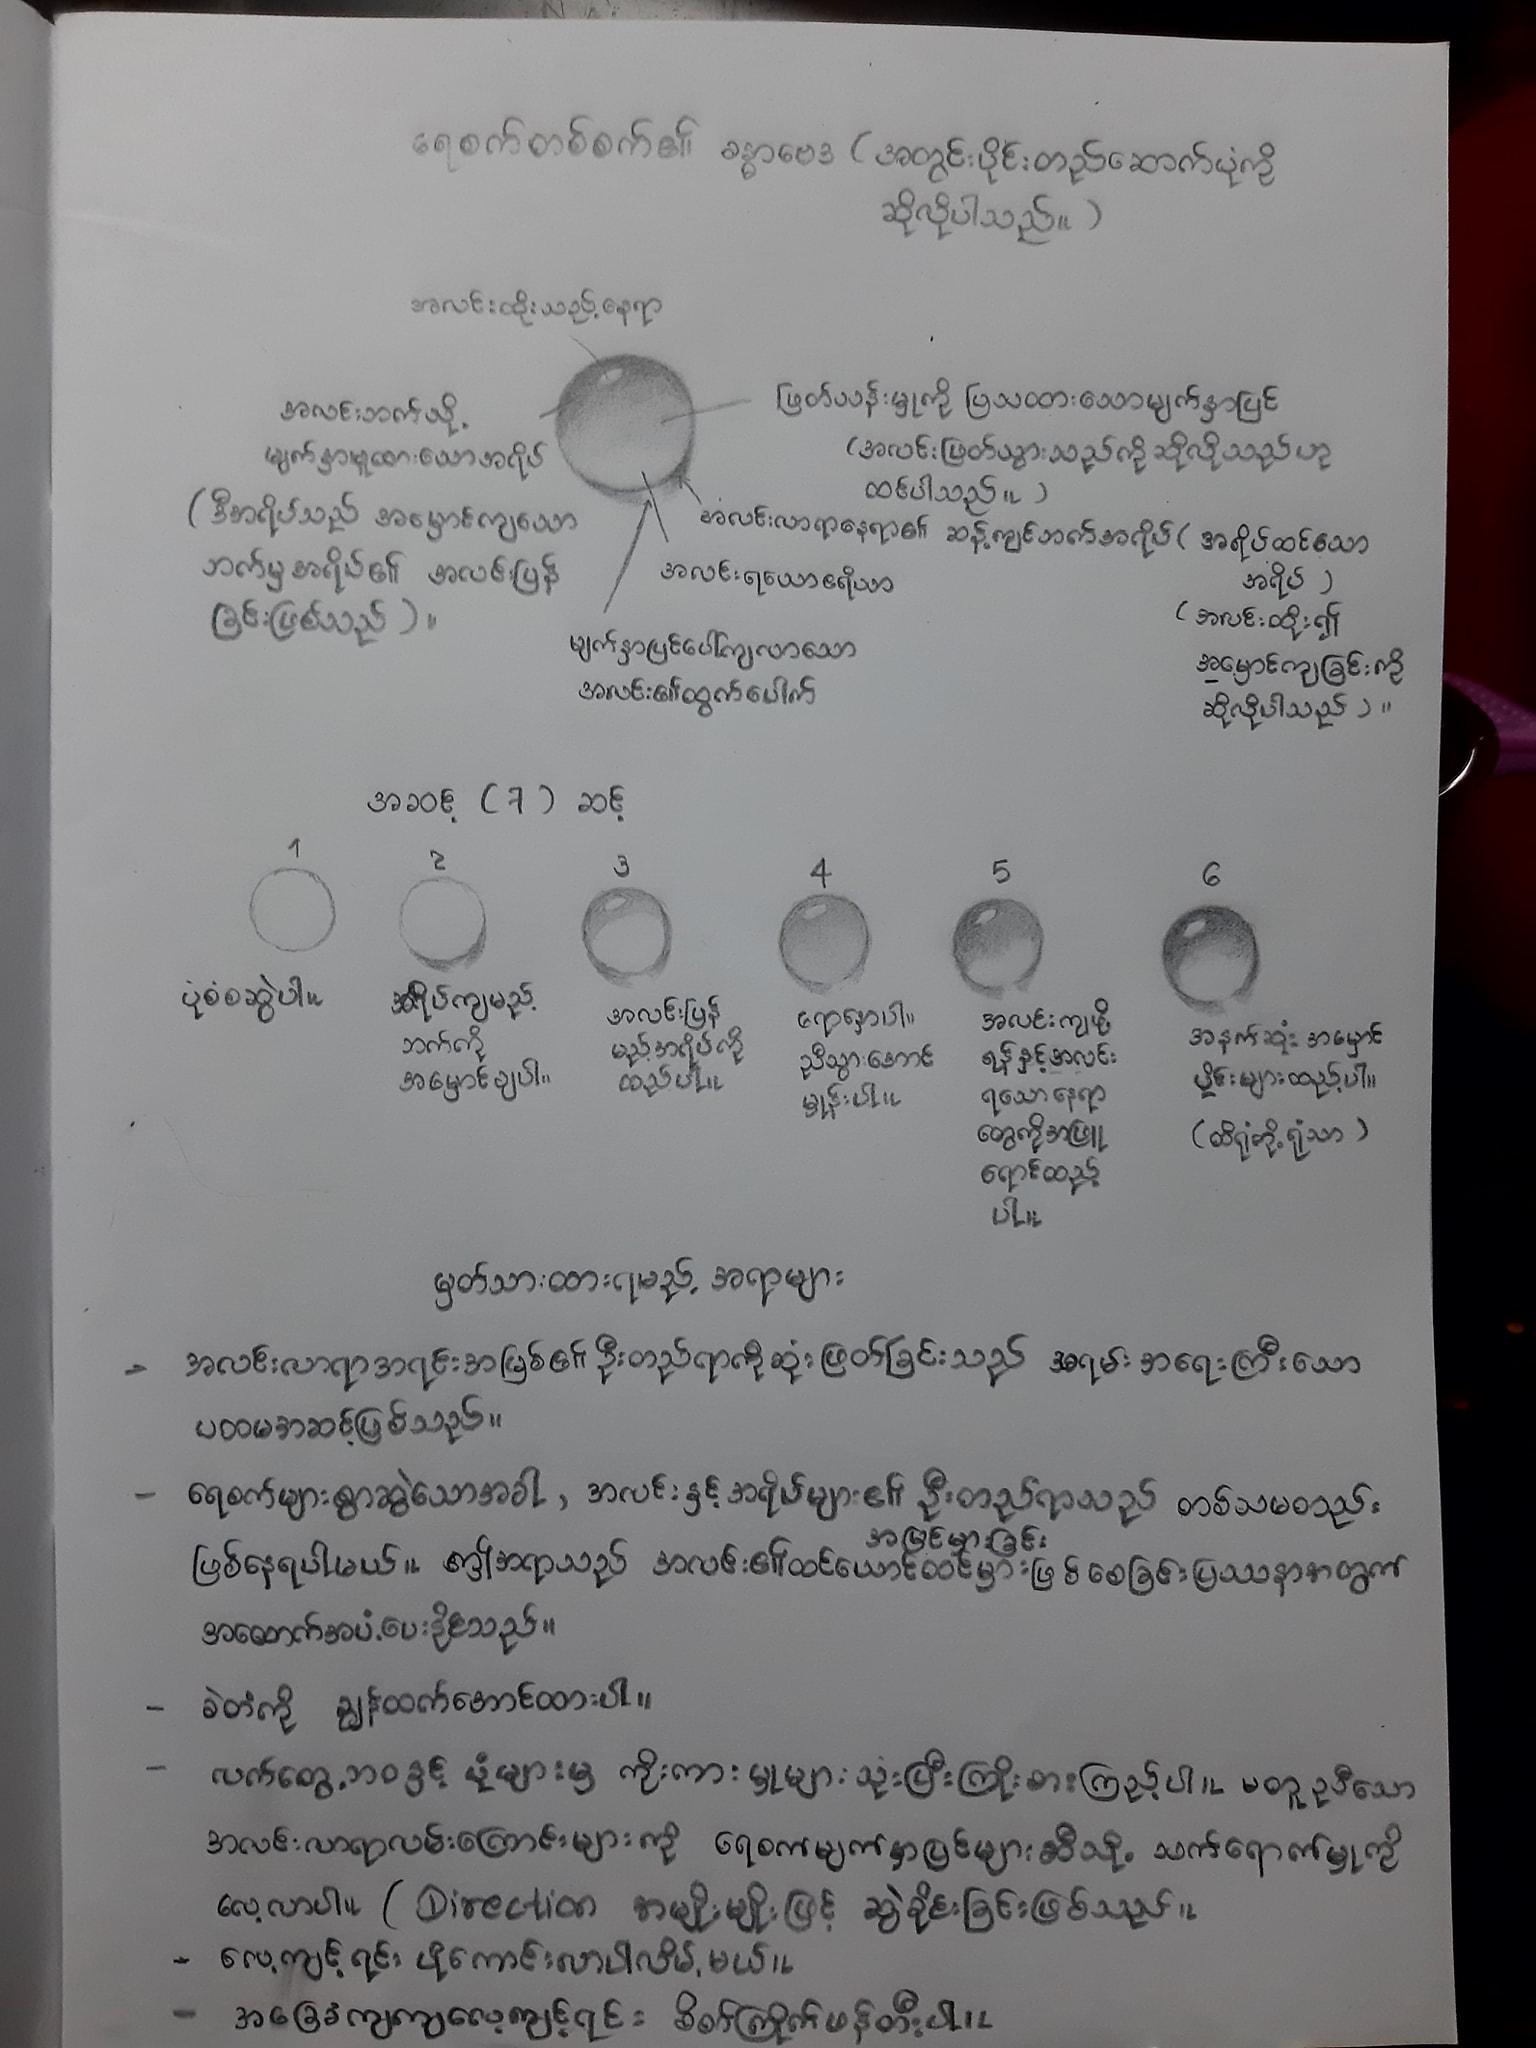 ရေစက်တစ်စက်၏ ခန္ဓာဗေဒ (အတွင်းပိုင်းတည်ဆောက်ပုံကို
ဆိုလိုပါသည်။)
အလင်းထိုးသည့်နေရာ
အလင်းဘက်သို့
မျက်နှာမူထားသောအရိပ်
(ဒီအရိပ်သည် အမှောင်ကျသော
ဘက်မှအရိပ်၏ အလင်းပြန်
ခြင်းဖြစ်သည်)။
ဖြတ်သန်းမှုကို ပြသထားသောမျက်နှာပြင်
(အလင်းဖြတ်သွားသည်ကိုဆိုလိုသည်ဟု
ထင်ပါသည်။)
အလင်းလာရာနေရာ၏ ဆန့်ကျင်ဘက်အရိပ် (အရိပ်ထင်သော
အရိပ်)
(အလင်းထိုး၍
အမှောင်ကျခြင်းကို
ဆိုလိုပါသည်)။
အလင်းရသောဧရိယာ
မျက်နှာပြင်ပေါ်ကျလာသော
အလင်း၏ထွက်ပေါက်
အဆင့် (7) ဆင့်
1 2 3 4 5 6
ပုံစံစဆွဲပါ။
အရိပ်ကျမည့်
ဘက်ကို
အမှောင်ချပါ။
အလင်းပြန်
မည့်အရိပ်ကို
ထည့်ပါ။
ရောနှောပါ။
ညီသွားအောင်
မှုန်းပါ။
အလင်းကျဖို့
ရန်နှင့်အလင်း
ရသောနေရာ
တွေကိုအဖြူ
ရောင်ထည့်
ပါ။
အနက်ဆုံး အမှောင်
ပိုင်းများထည့်ပါ။
(ထိရုံတို့ရုံသာ)
မှတ်သားထားရမည့် အရာများ
- အလင်းလာရာအရင်းအမြစ်၏ဦးတည်ရာကိုဆုံးဖြတ်ခြင်းသည် အရမ်းအရေးကြီးသော
ပထမအဆင့်ဖြစ်သည်။
- ရေစက်များစွာဆွဲသောအခါ, အလင်းနှင့်အရိပ်များ၏ ဦးတည်ရာသည် တစ်သမတည်း
အမြင်မှားခြင်း
ဖြစ်နေရပါမယ်။ ဤအရာသည် အလင်း၏ထင်ယောင်ထင်မှားဖြစ်စေခြင်းပြဿနာအတွက်
အထောက်အပံ့ပေးနိုင်သည်။
- ခဲတံကို ချွန်ထက်အောင်ထားပါ။
- လက်တွေ့ဘဝနှင့် ပုံများမှ ကိုးကားမှုများသုံးပြီးကြိုးစားကြည့်ပါ။ မတူညီသော
အလင်းလာရာလမ်းကြောင်းများကို ရေစက်မျက်နှာပြင်များဆီသို့ သက်ရောက်မှုကို
လေ့လာပါ။ (Direction အမျိုးမျိုးဖြင့် ဆွဲခိုင်းခြင်းဖြစ်သည်။
- လေ့ကျင့်ရင်း ပိုကောင်းလာပါလိမ့်မယ်။
- အခြေခံကျကျလေ့ကျင့်ရင်း စိတ်ကြိုက်ဖန်တီးပါ။